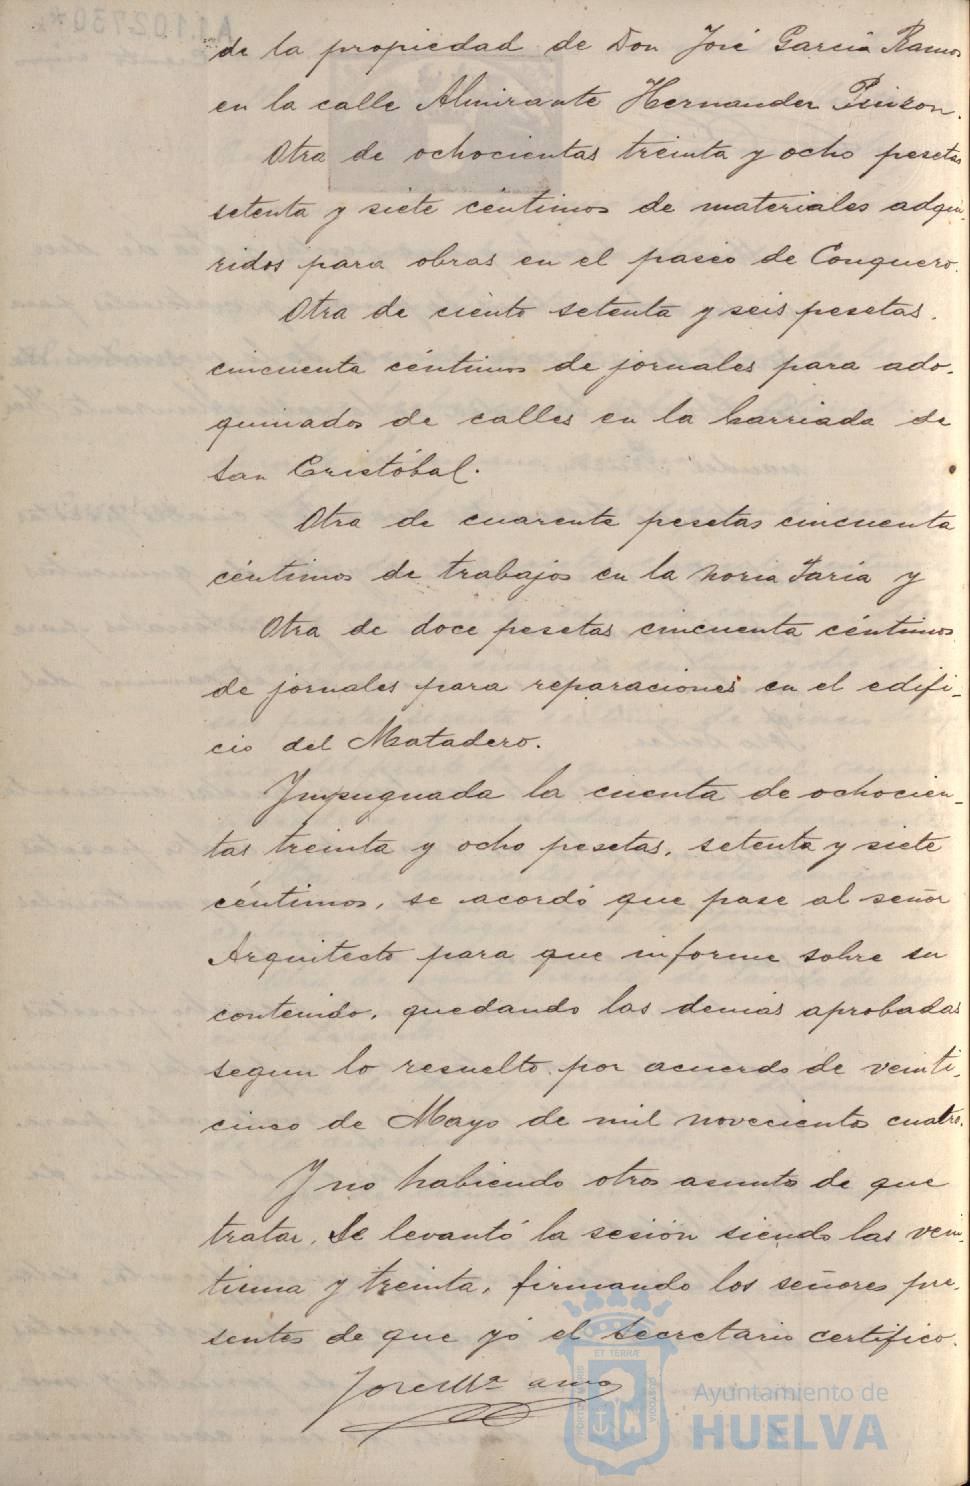 de la propiedad de Don José García Ramos
en la calle Almirante Hernandez Pinzon.
Otra de ochocientas treinta y ocho pesetas
setenta y siete céntimos de materiales adqui-
ridos para obras en el paseo de Conquero.
Otra de ciento setenta y seis pesetas.
cincuenta céntimos de jornales para ado-
quinados de calles en la barriada de
San Cristóbal.
Otra de cuarenta pesetas cincuenta
céntimos de trabajos en la noria Taria y
Otra de doce pesetas cincuenta céntimos
de jornales para reparaciones en el edifi-
cio del Matadero.
Impugnada la cuenta de ochocien-
tas treinta y ocho pesetas, setenta y siete
céntimos, se acordó que pase al señor
Arquitecto para que informe sobre su
contenido, quedando las demás aprobadas
segun lo resuelto por acuerdo de veinti-
cinco de Mayo de mil novecientos cuatro.
Y no habiendo otros asuntos de que
tratar, Se levantó la sesión siendo las vein-
tiuna y treinta, firmando los señores pre-
sentes de que yó el Secretario certifico.
José Mª
Ayuntamiento de
HUELVA
ET TERRÆ
PORTUS MARIS
CUSTODIA